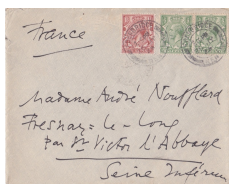 France
Madame André Noufflard
Fresnay-le-Long
par St Victor l'Abbaye
Seine Inférieure